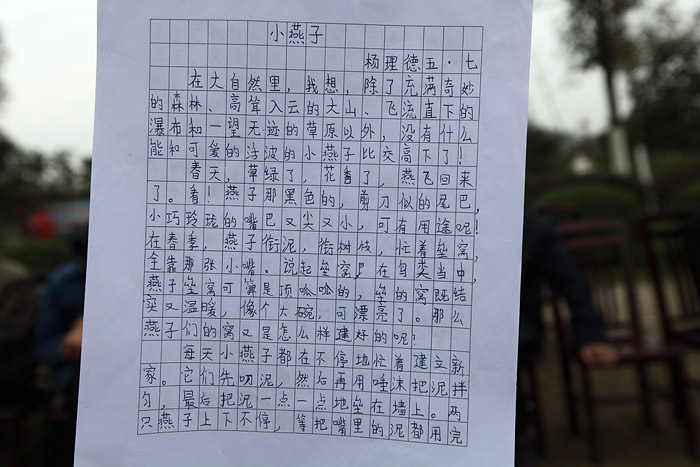 小燕子
杨理德五·七
在大自然里，我想，除了充满奇妙
的森林、高耸入云的大山、飞流直下的
瀑布和一望无迹的草原以外，没有什么
能和可爱的活波的小燕子比交高下了！
春天，草绿了，花香了，燕飞回来
了。看！燕子那黑色的，剪刀似的尾巴，
小巧玲珑的嘴巴又尖又小，可有用途呢！
在春季，燕子衔泥，衔树枝，忙着垒窝，
全靠那张小嘴。说起垒窝，在鸟类当中，
燕子垒窝可算是顶呱呱的，垒的窝既结
实又温暖，像个大碗，可漂亮了。那么
燕子们的窝又是怎么样建好的呢？
每天小燕子都在不停地忙着建立新
家。它们先叨泥，然后再用唾沫把泥拌
匀，最后把泥一点一点地垒在墙上。两
只燕子上下不停，等把嘴里的泥都用完